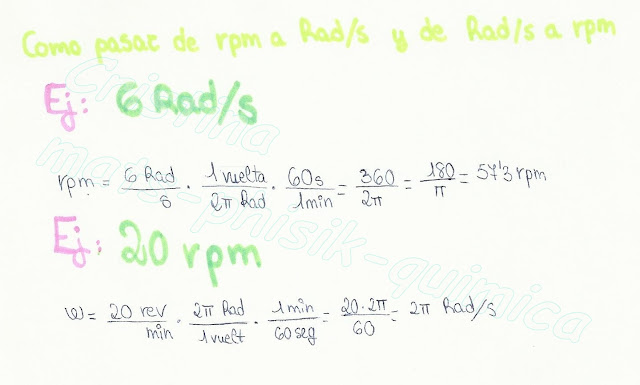 Como pasar de rpm a Rad/s y de Rad/s a rpm
Ej: 6 Rad/s
rpm = 6 Rad/s · 1 vuelta/2π Rad · 60s/1min = 360/2π = 180/π = 57'3 rpm
Ej: 20 rpm
ω = 20 rev/min · 2π Rad/1 vuelt · 1 min/60 seg = 20·2π/60 = 2π Rad/s
Cristina
mates-phisik-quimica